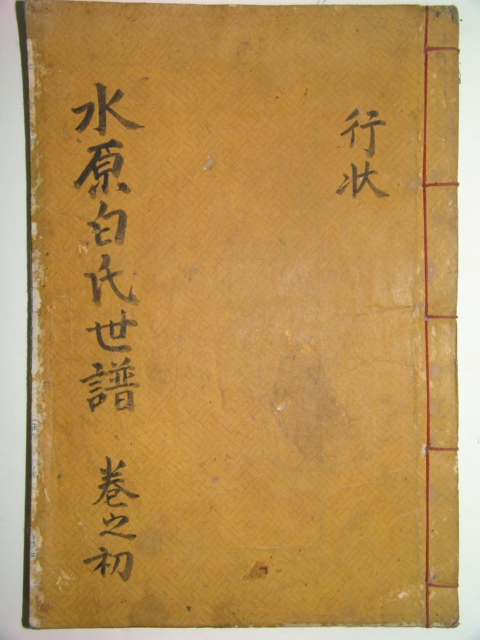 行状
水原白氏世譜 卷之初